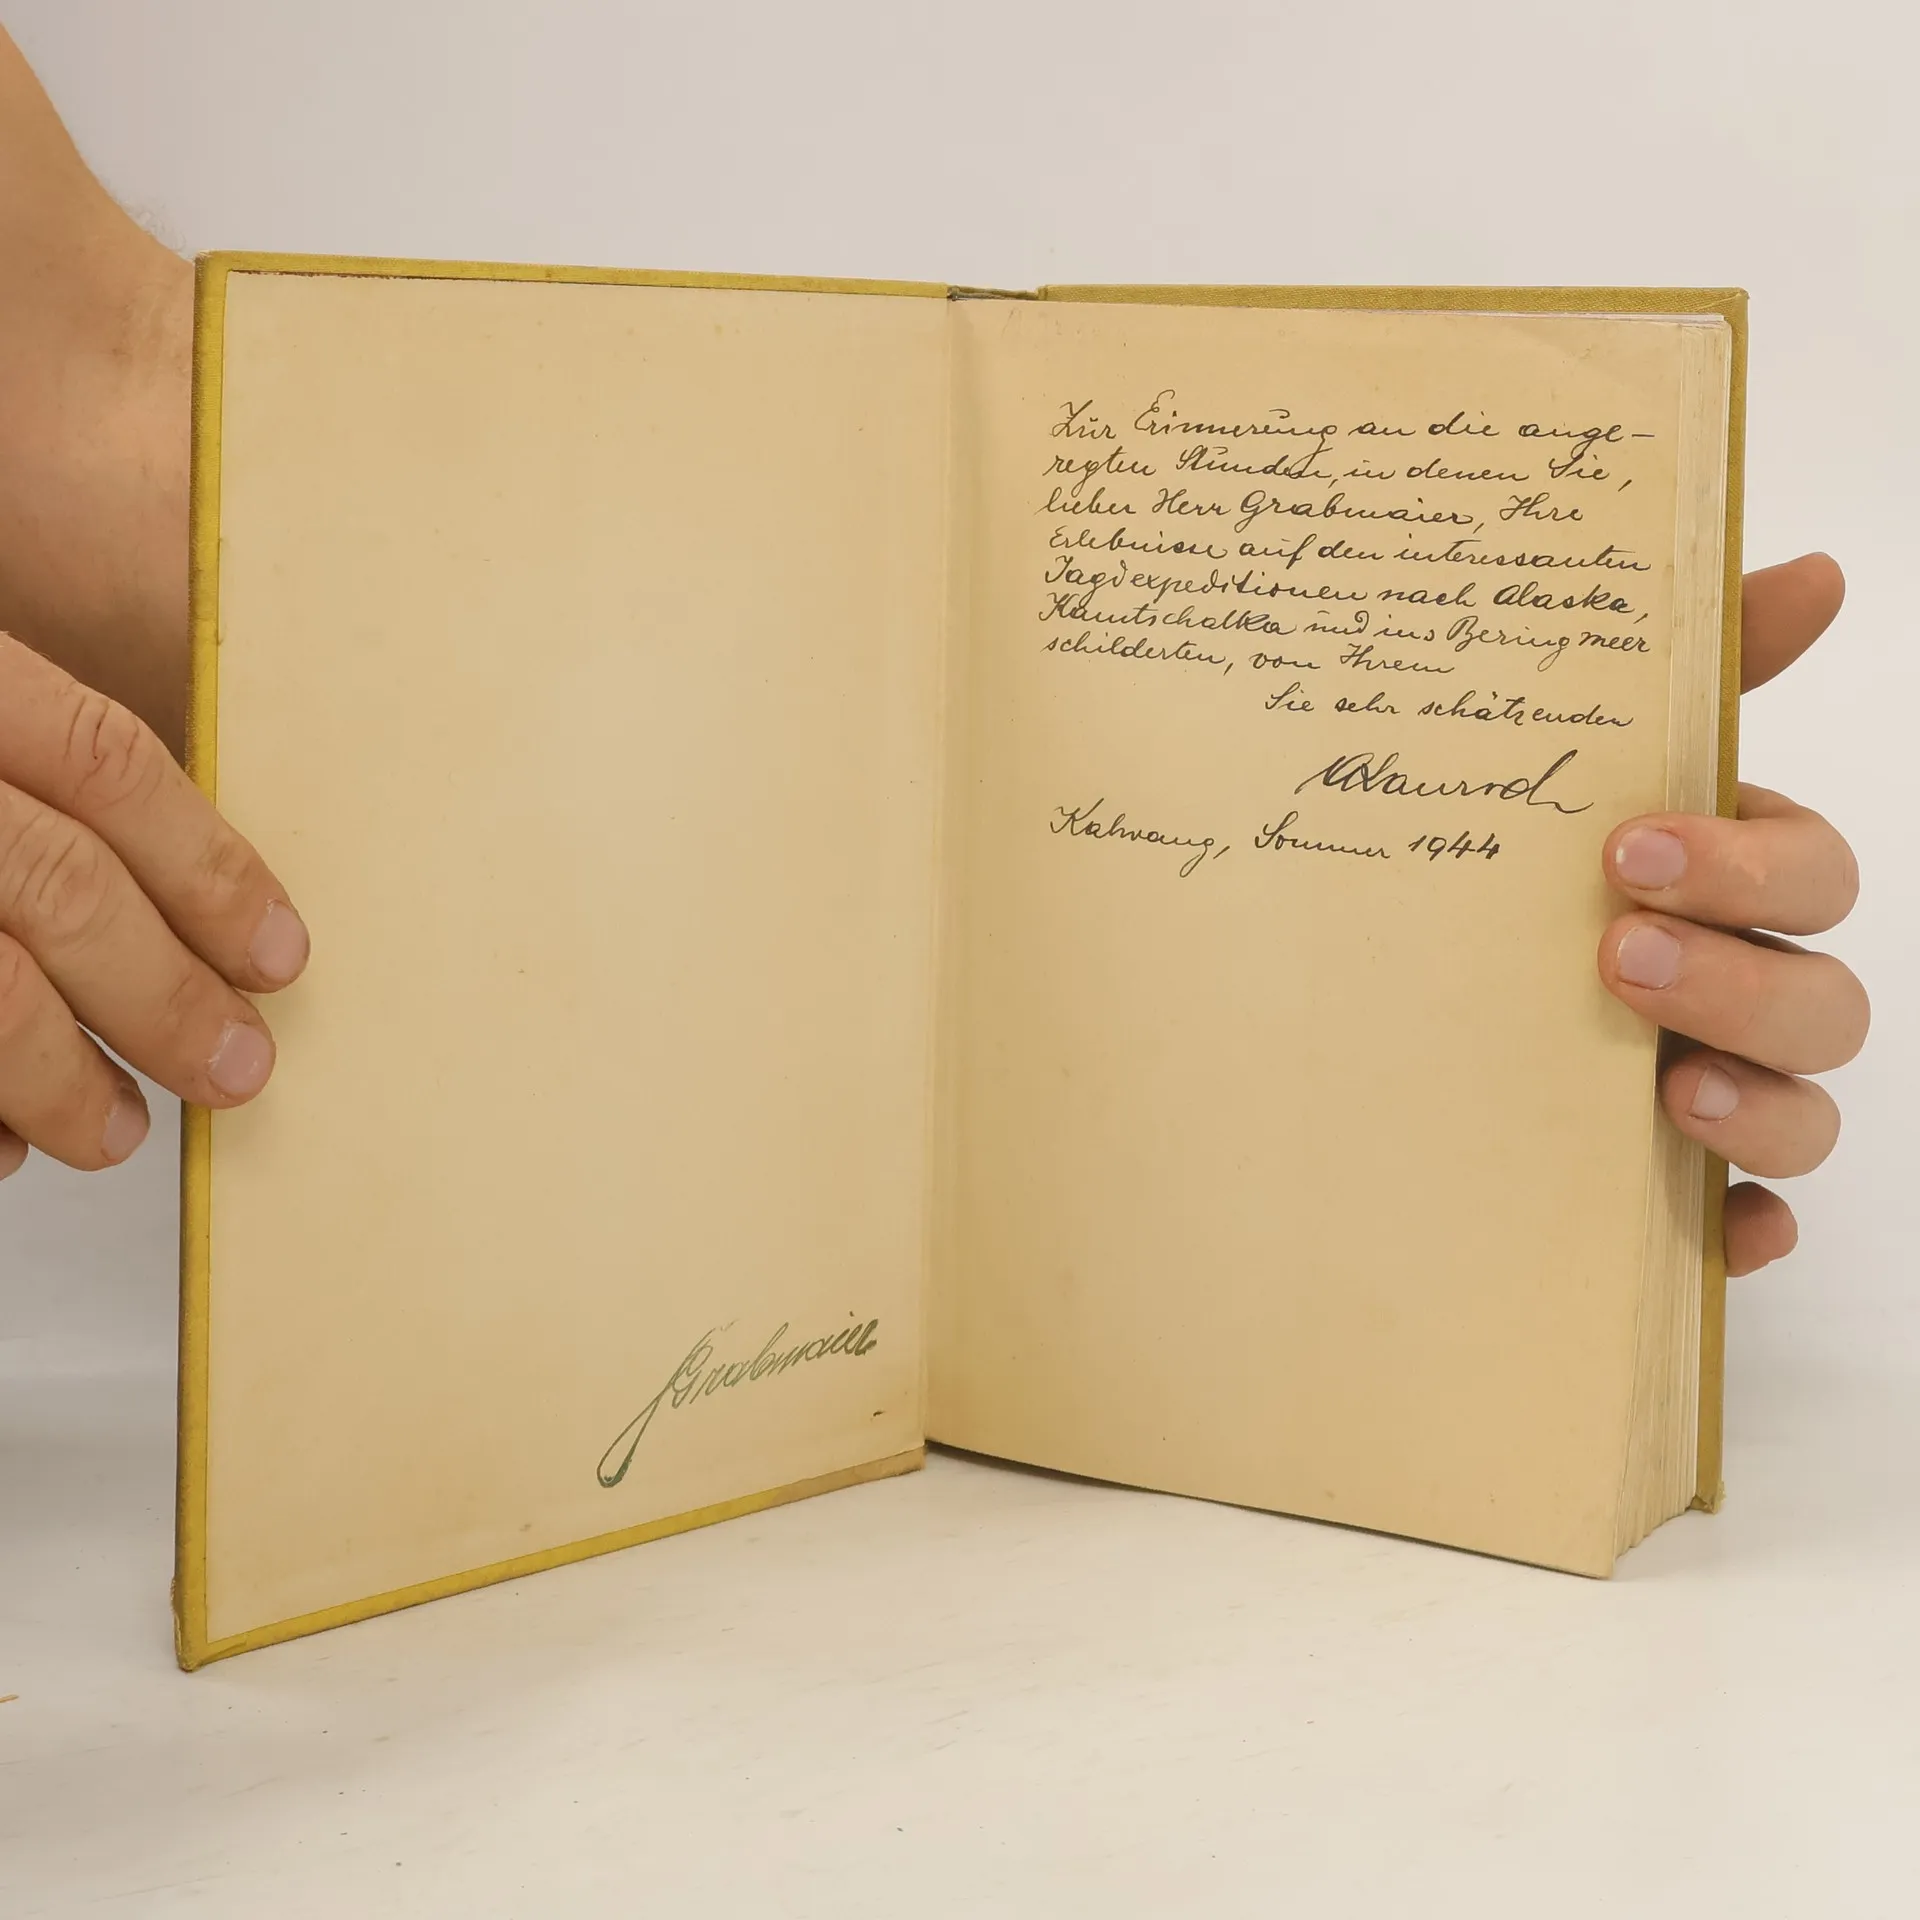 Zur Erinnerung an die ange-
regten Stunden, in denen Sie,
lieber Herr Grabmaier, Ihre
Erlebnisse auf den interessanten
Jagdexpeditionen nach Alaska,
Kamtschatka und ins Beringmeer
schilderten, von Ihrem
Sie sehr schätzenden
Kalwang, Sommer 1944
Grabmaier